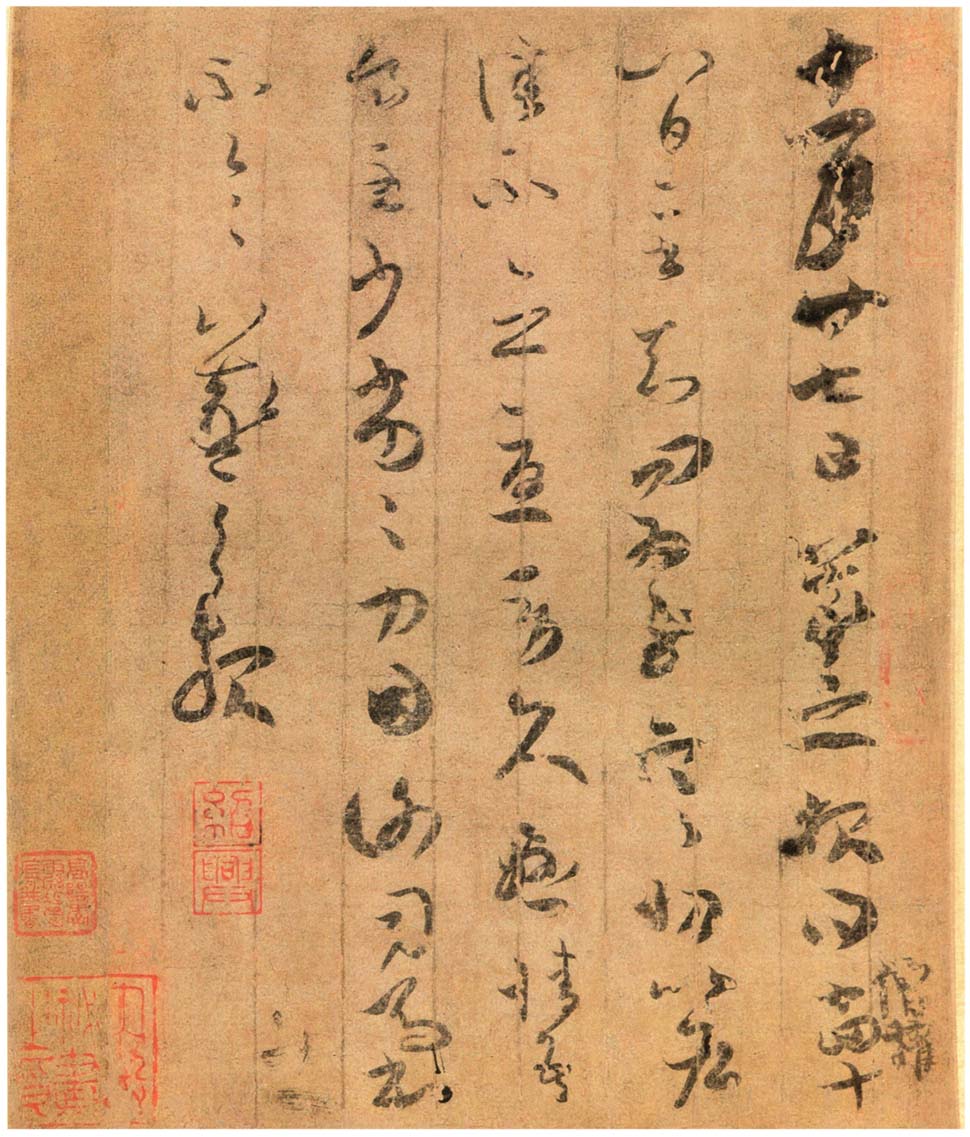 十一月廿七日羲之報得十四十
八日二書知問為慰寒切比各
佳不念憂勞久懸情吾
食至少劣劣力因謝司馬書
不一一羲之報
僧權
紹興